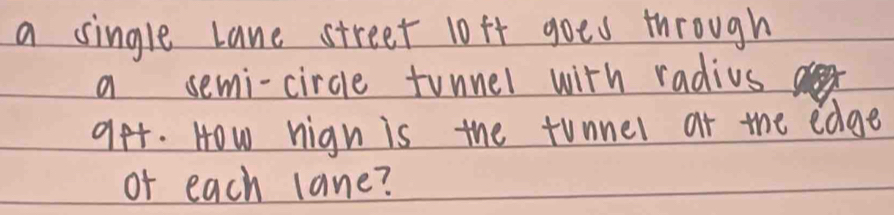 a single lane street 10 ft goes through
a semi-circle tunnel with radius
9ft. How high is the tunnel at the edge
of each lane?